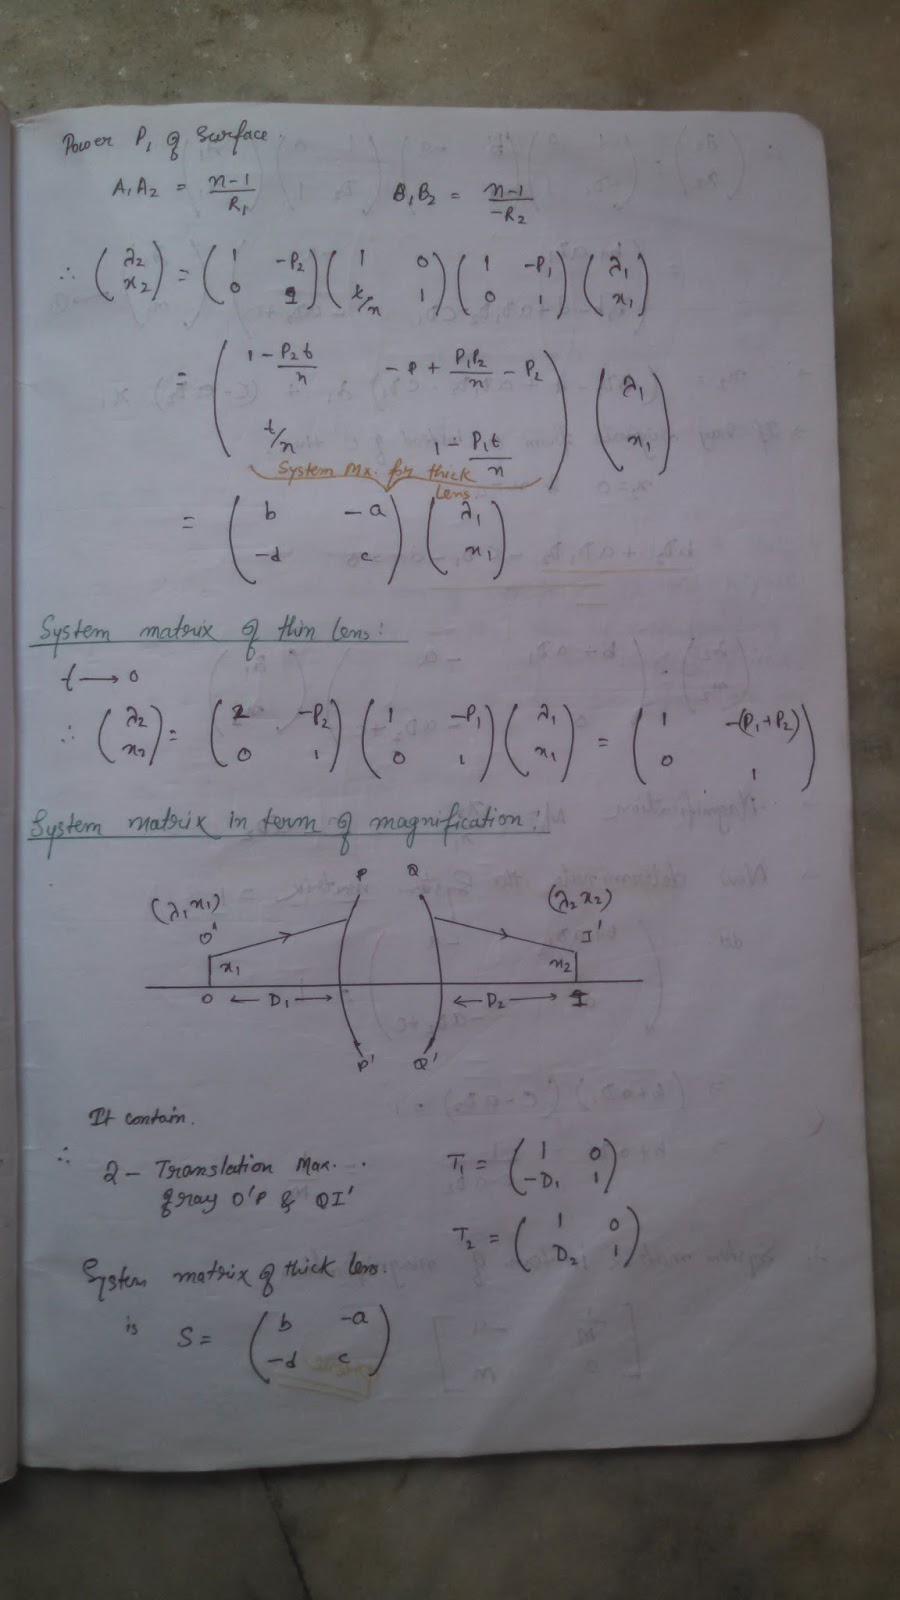 Power P₁ of Surface.
A₁A₂ = (n-1)/R₁    B₁B₂ = (n-1)/(-R₂)
∴ (λ₂ x₂) = (1 -P₂ 0 1) (1 0 t/n 1) (1 -P₁ 0 1) (λ₁ x₁)
= (1 - P₂t/n    -P + P₁P₂/n - P₂    t/n    1 - P₁t/n) (λ₁ x₁)
System Mx. for thick
Lens.
= (b -a -d c) (λ₁ x₁)
System matrix of thin lens:
t → 0
∴ (λ₂ x₂) = (1 -P₂ 0 1) (1 -P₁ 0 1) (λ₁ x₁) = (1 -(P₁+P₂) 0 1)
System matrix in term of magnification:
P Q
(λ₁ x₁) (λ₂ x₂)
O' I'
x₁ x₂
O ← D₁ → ← D₂ → I
P' Q'
It contain.
∴ 2 - Translation Max. T₁ = (1 0 -D₁ 1)
of ray O'P & QI'
T₂ = (1 0 D₂ 1)
System matrix of thick lens.
is S = (b -a -d c)